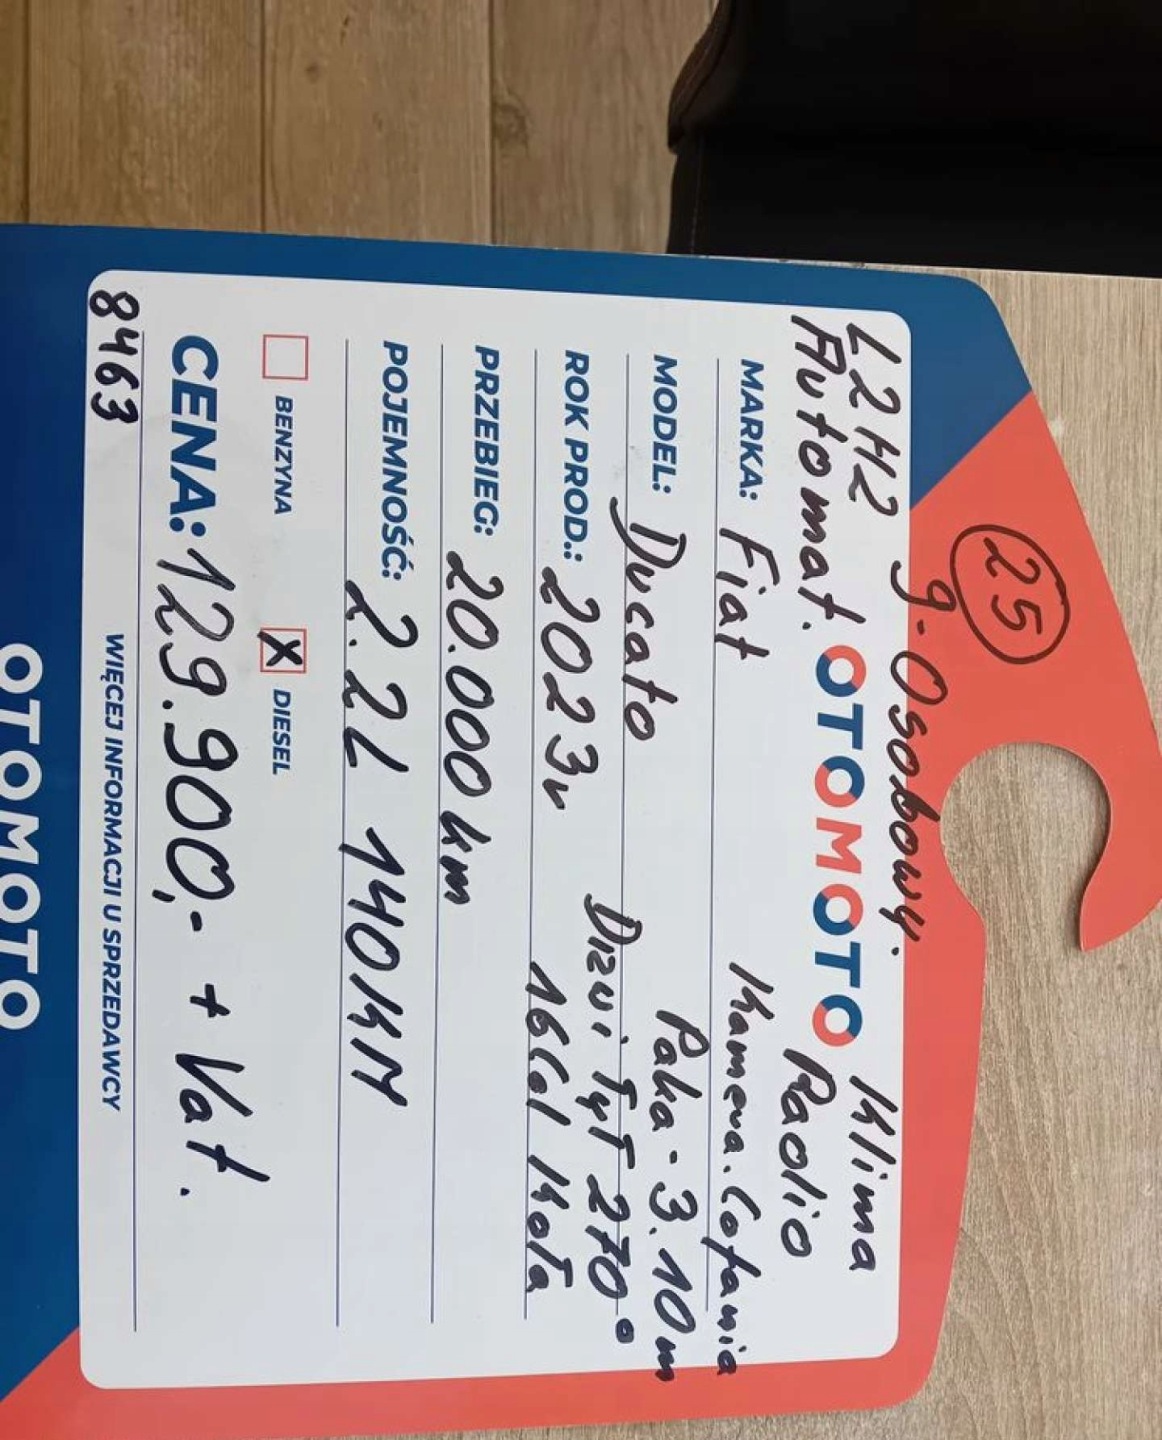 25
9-Osobowy.
L2H2
Klima
Automat.
OTOMOTO
Radio
MARKA: Fiat
Kamera. Cofania
MODEL: Ducato
Paka - 3.10m
ROK PROD.: 2023r
Drzwi Tył 270°
PRZEBIEG: 20.000 km
16 Cal Koła
POJEMNOŚĆ: 2.2L 140KM
BENZYNA X DIESEL
CENA: 129.900,- + Vat.
8463
WIĘCEJ INFORMACJI U SPRZEDAWCY
OTOMOTO